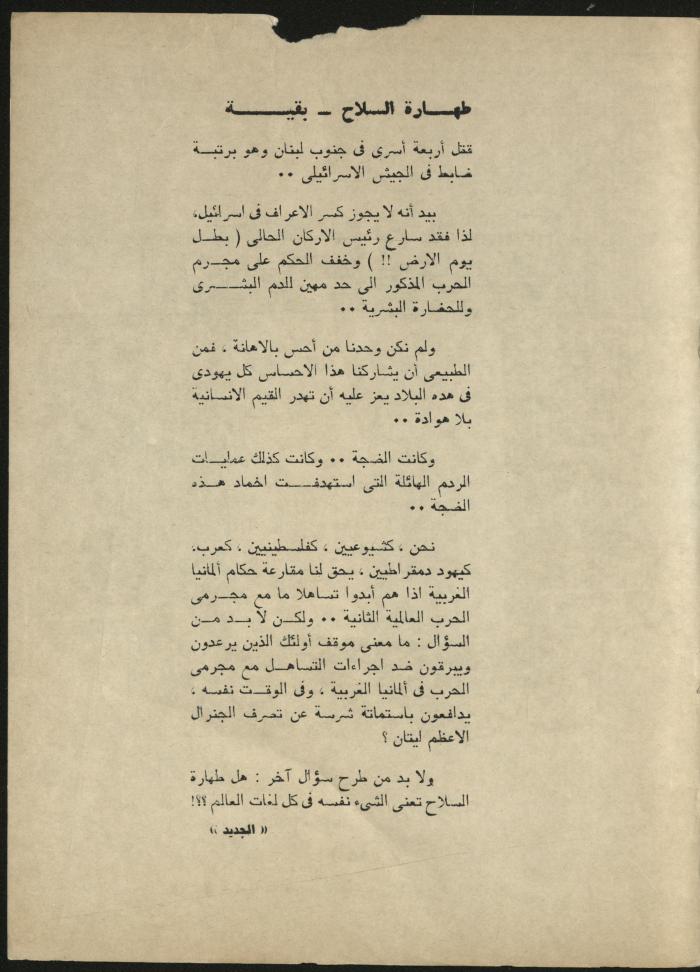 طهارة السلاح ـ بقية
فقتل أربعة أسرى فى جنوب لبنان وهو برتبة
ضابط فى الجيش الاسرائيلى ..
بيد أنه لا يجوز كسر الاعراف فى اسرائيل،
لذا فقد سارع رئيس الاركان الحالى ( بطل
يوم الارض !! ) وخفف الحكم على مجرم
الحرب المذكور الى حد مهين للدم البشرى
وللحضارة البشرية ..
ولم نكن وحدنا من أحس بالاهانة ، فمن
الطبيعى أن يشاركنا هذا الاحساس كل يهودى
فى هده البلاد يعز عليه أن تهدر القيم الانسانية
بلا هوادة ..
وكانت الضجة .. وكانت كذلك عمليات
الردم الهائلة التى استهدفت اخماد هذه
الضجة ..
نحن ، كشيوعيين ، كفلسطينيين ، كعرب،
كيهود دمقراطيين ، يحق لنا مقارعة حكام ألمانيا
الغربية اذا هم أبدوا تساهلا ما مع مجرمى
الحرب العالمية الثانية .. ولكن لا بد من
السؤال : ما معنى موقف أولئك الذين يرعدون
ويبرقون ضد اجراءات التساهل مع مجرمى
الحرب فى ألمانيا الغربية ، وفى الوقت نفسه ،
يدافعون باستماتة شرسة عن تصرف الجنرال
الاعظم ايتان ؟
ولا بد من طرح سؤال آخر : هل طهارة
السلاح تعنى الشىء نفسه فى كل لغات العالم ؟؟!
« الجديد »